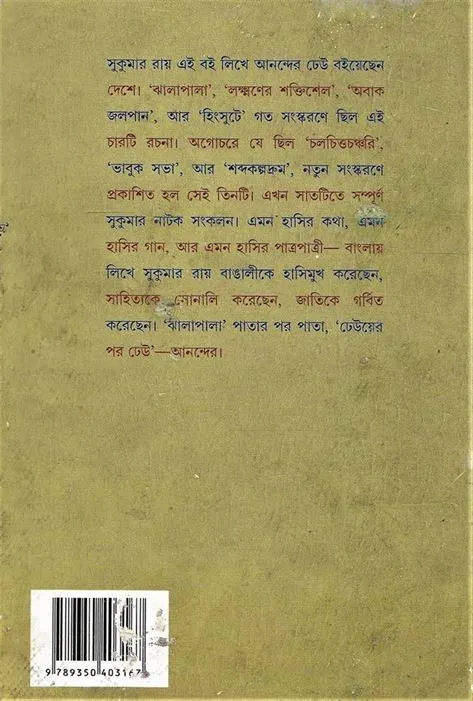 সুকুমার রায় এই বই লিখে আনন্দের ঢেউ বইয়েছেন
দেশে। ‘ঝালাপালা’, ‘লক্ষ্মণের শক্তিশেল’, ‘অবাক
জলপান’, আর ‘হিংসুটে’ গত সংস্করণে ছিল এই
চারটি রচনা। অগোচরে যে ছিল ‘চলচিত্তচঞ্চরি’,
‘ভাবুক সভা’, আর ‘শব্দকল্পদ্রুম’, নতুন সংস্করণে
প্রকাশিত হল সেই তিনটি। এখন সাতটিতে সম্পূর্ণ
সুকুমার নাটক সংকলন। এমন হাসির কথা, এমন
হাসির গান, আর এমন হাসির পাত্রপাত্রী— বাংলায়
লিখে সুকুমার রায় বাঙালীকে হাসিমুখ করেছেন,
সাহিত্যকে সোনালি করেছেন, জাতিকে গর্বিত
করেছেন। ‘ঝালাপালা’ পাতার পর পাতা, ‘ঢেউয়ের
পর ঢেউ’—আনন্দের।
9 789350 403167